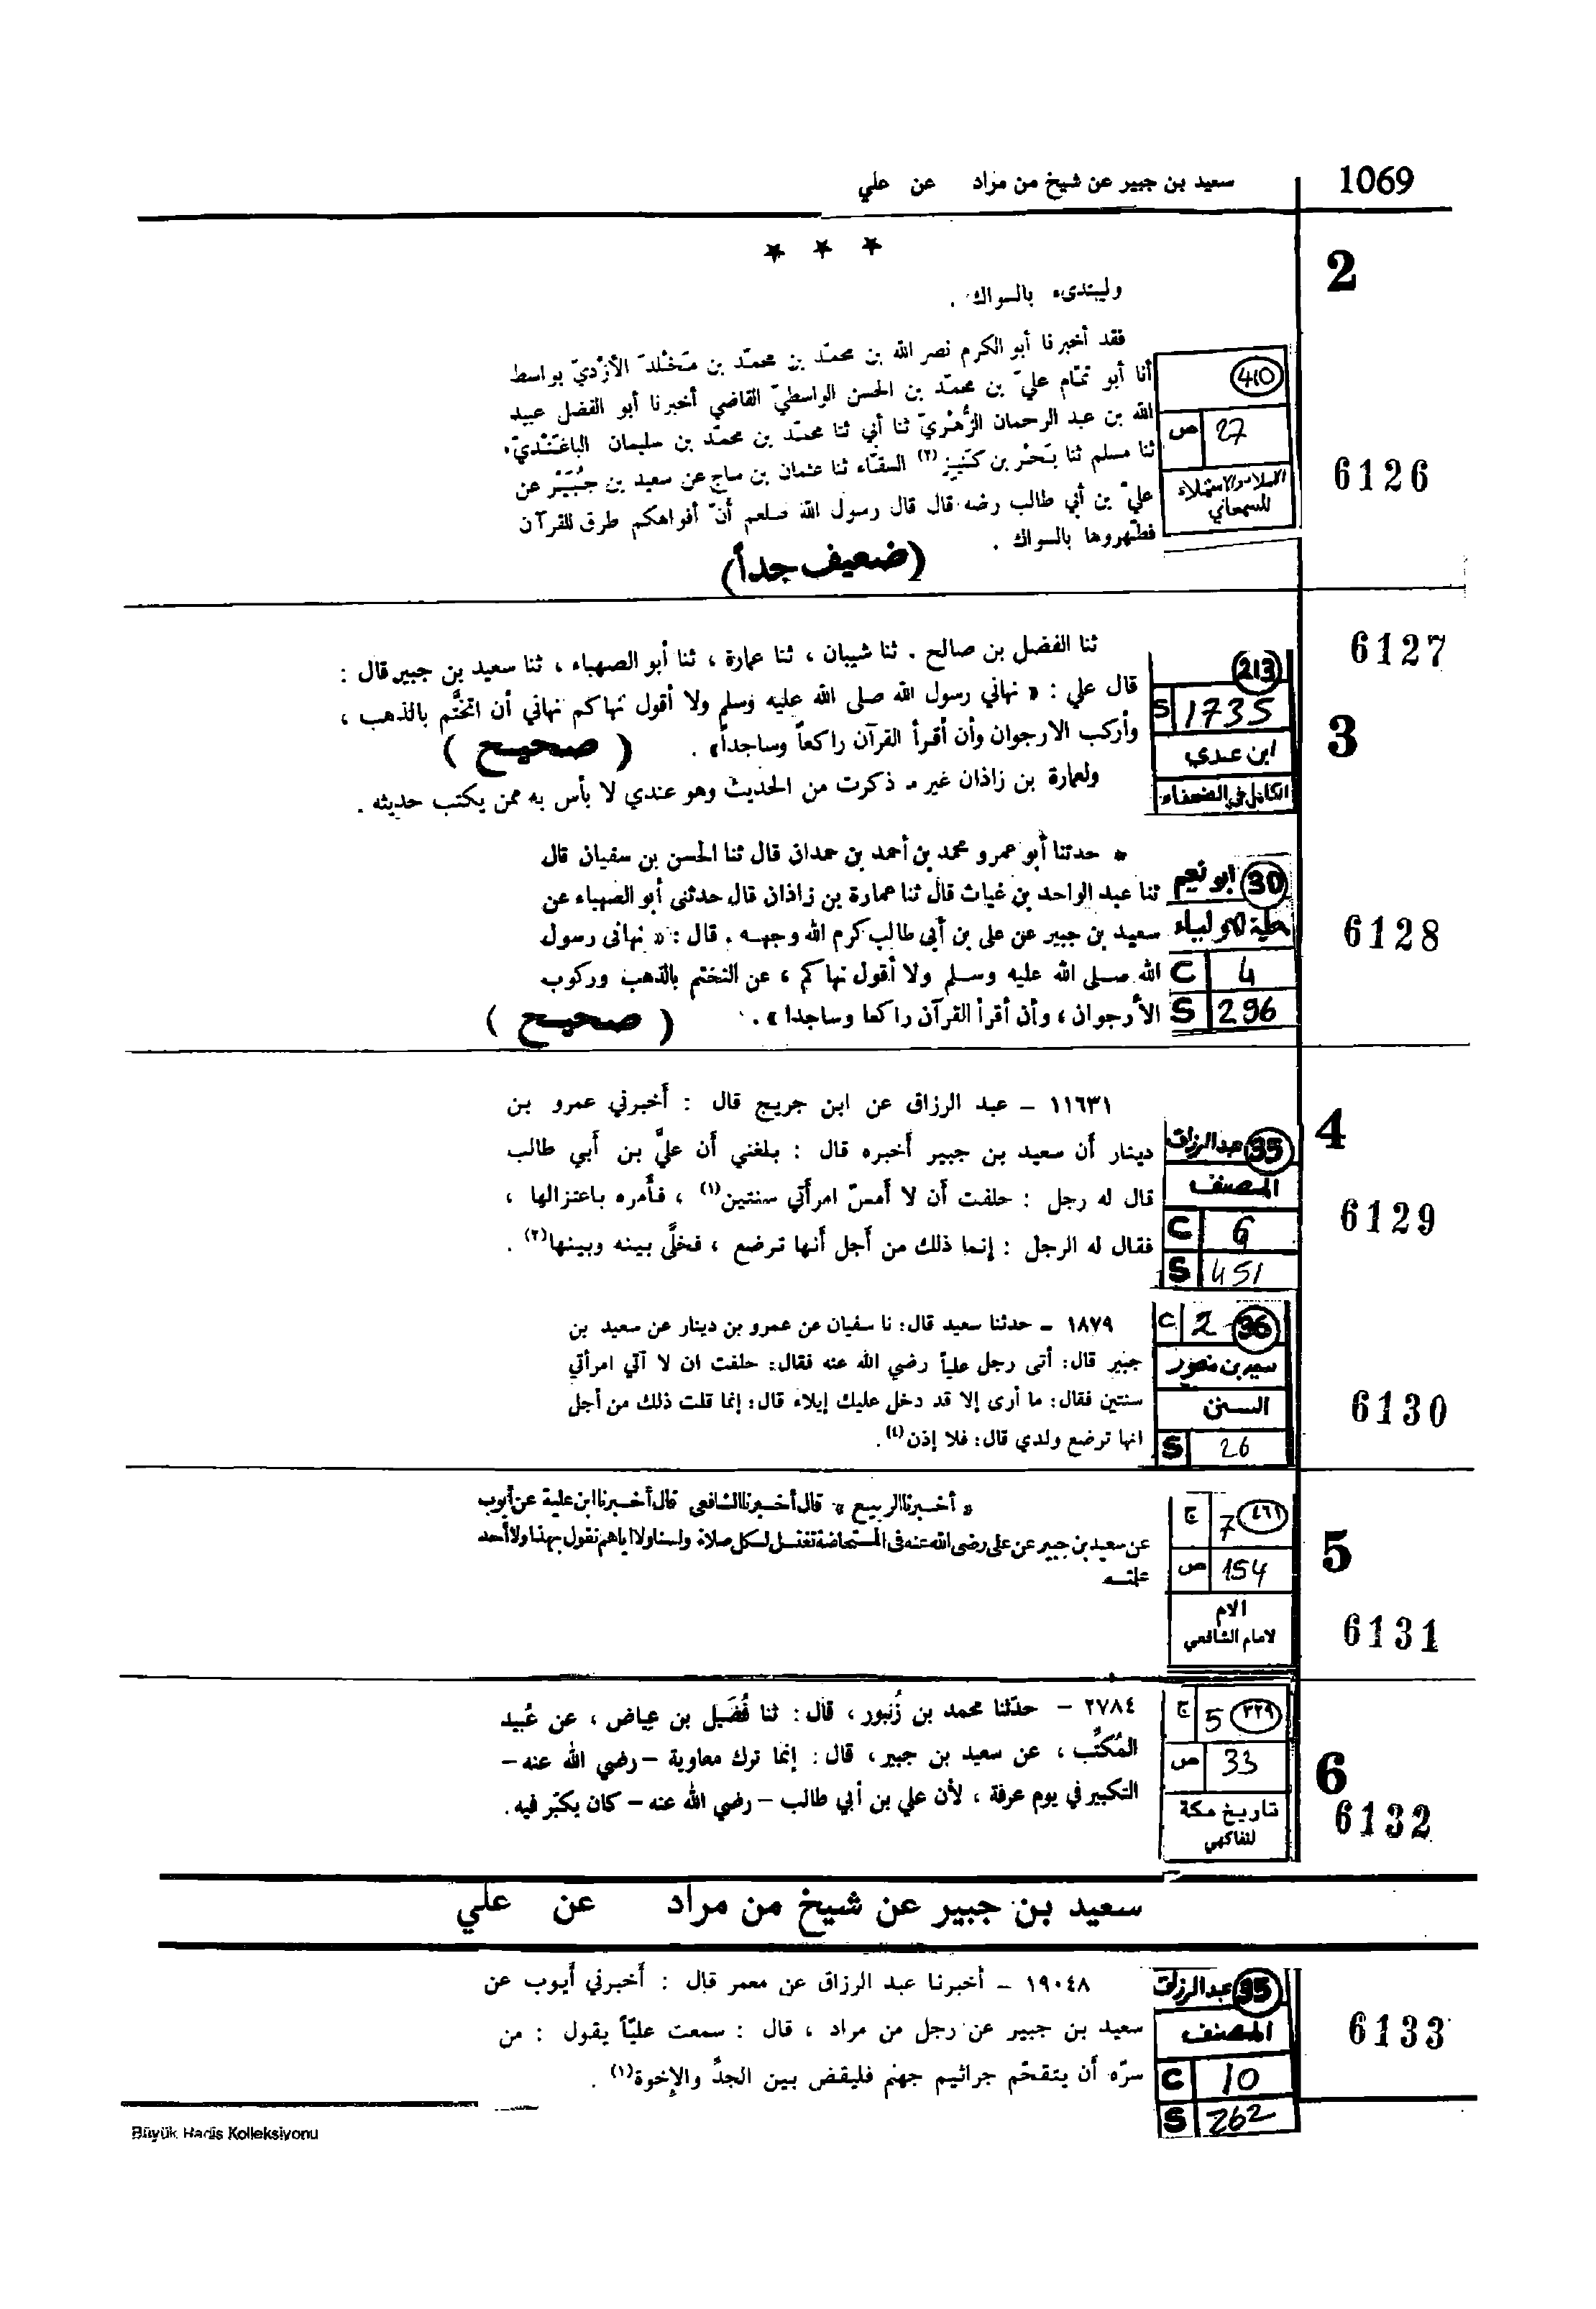 سعيد بن جبير عن شيخ من مراد عن علي
1069
2
* * *
وليبتدىء بالسواك .
فقد أخبرنا أبو الكرم نصر الله بن محمّد بن محمّد بن مَخْلَد الأزْديّ بواسط
أنا أبو تمّام عليّ بن محمّد بن الحسن الواسطيّ القاضي أخبرنا أبو الفضل عبيد
الله بن عبد الرحمان الزُّهْريّ ثنا أبي ثنا محمّد بن محمّد بن سليمان الباغَنْديّ
ثنا مسلم ثنا بَحْر بن كَنيز (٢) السقّاء ثنا عثمان بن ساج عن سعيد بن جُبَيْر عن
عليّ بن أبي طالب رضه قال قال رسول الله صلعم أنّ أفواهكم طرق للقرآن
فطهّروها بالسواك .
(ضعيف جداً)
410
ص 27
الاملاء والاستملاء
للسمعاني
6126
6127
ثنا الفضل بن صالح . ثنا شيبان ، ثنا عمارة ، ثنا أبو الصهباء ، ثنا سعيد بن جبير قال :
قال علي : « نهاني رسول الله صلى الله عليه وسلم ولا أقول نهاكم نهاني أن اتختَّم بالذهب ،
وأركب الارجوان وأن أقرأ القرآن راكعاً وساجداً» .
( صحيح )
ولعمارة بن زاذان غير ما ذكرت من الحديث وهو عندي لا بأس به ممن يكتب حديثه .
213
S 1735
ابن عدي
الكامل في الضعفاء
3
* حدثنا أبو عمرو محمد بن أحمد بن حمدان قال ثنا الحسن بن سفيان قال
ثنا عبد الواحد بن غياث قال ثنا عمارة بن زاذان قال حدثنى أبو الصهباء عن
سعيد بن جبير عن على بن أبي طالب كرم الله وجهه . قال : « نهانى رسول
الله صلى الله عليه وسلم ولا أقول نهاكم ، عن التختم بالذهب وركوب
الأرجوان ، وأن أقرأ القرآن راكعا وساجدا » .
( صحيح )
30 ابو نعيم
حلية الاولياء
C 4
S 296
6128
١١٦٣١ – عبد الرزاق عن ابن جريج قال : أَخبرني عمرو بن
دينار أَن سعيد بن جبير أَخبره قال : بلغني أَن عليَّ بن أَبي طالب
قال له رجل : حلفت أَن لا أَمسّ امرأَتي سنتين(١) ، فأَمره باعتزالها ،
فقال له الرجل : إنما ذلك من أَجل أَنها ترضع ، فخلَّى بينه وبينها(٢) .
35 عبد الرزاق
المصنف
C 6
S 451
4
6129
١٨٧٩ – حدثنا سعيد قال: نا سفيان عن عمرو بن دينار عن سعيد بن
جبير قال: أتى رجل علياً رضي الله عنه فقال: حلفت ان لا آتي امرأتي
سنتين فقال: ما أرى إلا قد دخل عليك إيلاء قال: إنما قلت ذلك من أجل
انها ترضع ولدي قال: فلا إذن(٤).
C 2 36
سعيد بن منصور
السنن
S 26
6130
« أخبرنا الربيع » قال أخبرنا الشافعى قال أخبرنا ابن علية عن أيوب
عن سعيد بن جبير عن على رضى الله عنه فى المستحاضة تغتسل لكل صلاة ولسنا ولا اياهم نقول بهذا ولا أحد
علمته
ج 7 ٤٦١
ص 154
الام
لامام الشافعي
5
6131
٢٧٨٤ – حدّثنا محمد بن زُنبور ، قال: ثنا فُضَيل بن عياض ، عن عُبيد
المُكتِّب ، عن سعيد بن جبير ، قال: إنما ترك معاوية – رضي الله عنه –
التكبير في يوم عرفة ، لأن علي بن أبي طالب – رضي الله عنه – كان يكبّر فيه.
ج 5 ٣٢٩
ص 33
تاريخ مكة
للفاكهي
6
6132
سعيد بن جبير عن شيخ من مراد عن علي
١٩٠٤٨ – أخبرنا عبد الرزاق عن معمر قال : أَخبرني أَيوب عن
سعيد بن جبير عن رجل من مراد ، قال : سمعت عليّاً يقول : من
سرّه أن يتقحّم جراثيم جهنم فليقض بين الجدِّ والإخوة(١) .
35 عبد الرزاق
المصنف
C 10
S 262
6133
Büyük Hadis Kolleksiyonu